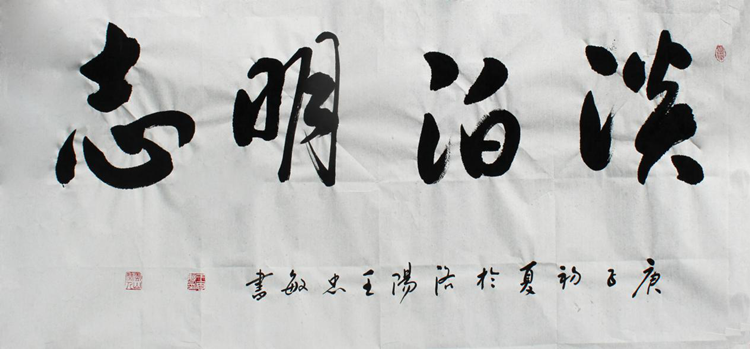 淡泊明志
庚子初夏於洛陽王忠敏書